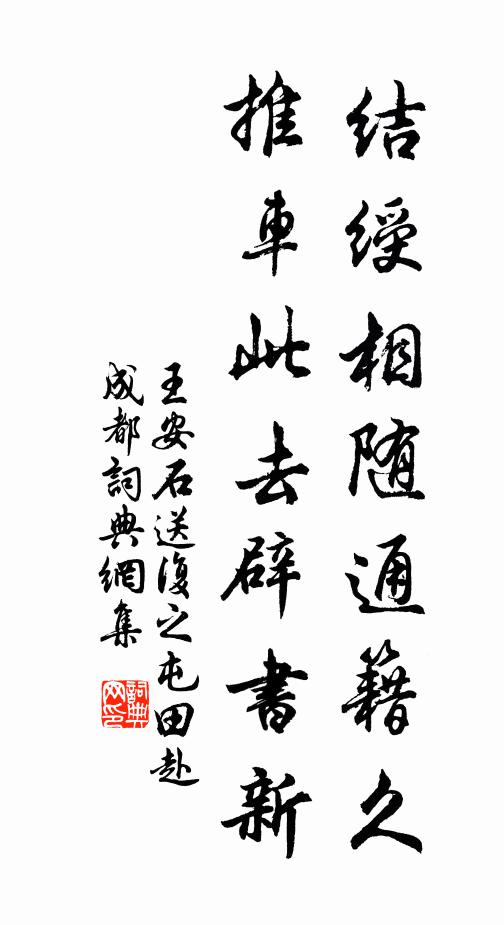 结绶相随通籍久
推車此去辟書新
王安石送復之屯田赴
成都詞典網集
詞典
网印